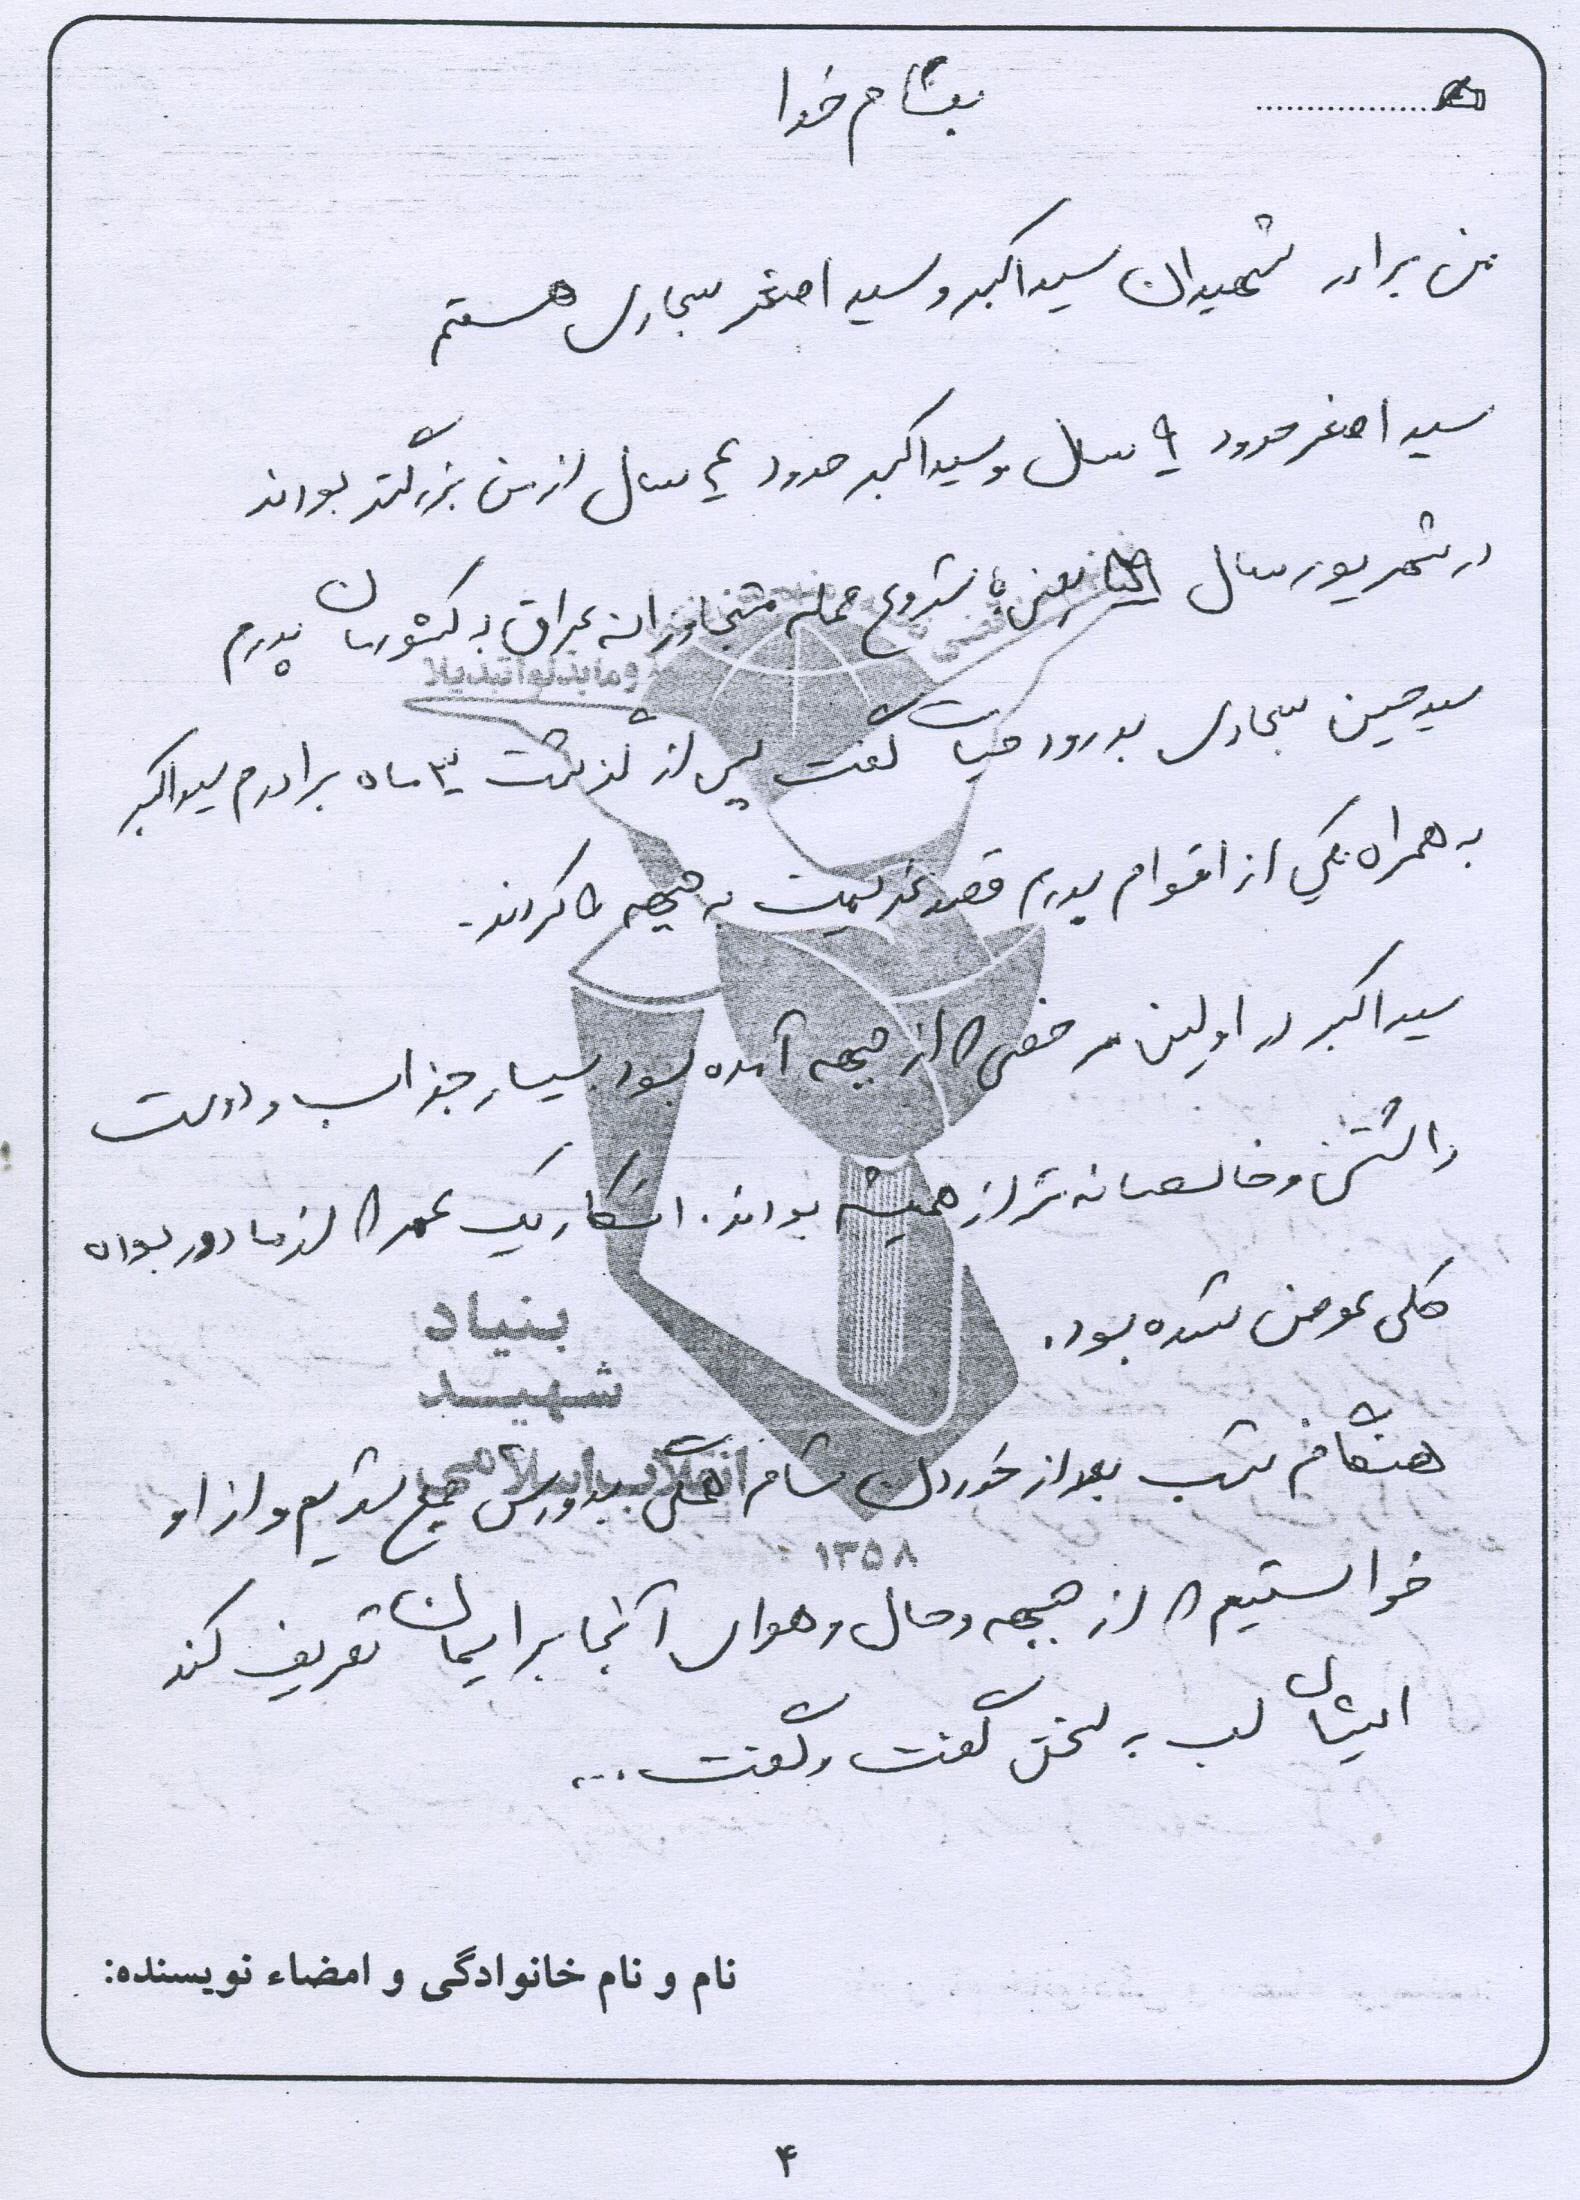 بنام خدا
من برادر شهیدان سید اکبر و سید اصغر سجادی هستم
سید اصغر حدود ۹ سال و سید اکبر حدود ۴ سال از من بزرگتر بودند
در شهریور سال یعنی شروع حمله متجاوزانه عراق به کشورمان پدرم
سید حسین سجادی بدرود حیات گفت پس از گذشت ۳ ماه برادرم سید اکبر
به همراه یکی از اقوام پدرم قصد عزیمت به جبهه کردند.
سید اکبر در اولین مرخصی که از جبهه آمده بود بسیار جذاب و دوست
داشتنی و خالصانه تر از همیشه بودند. انگار یک عمر که از ما دور بوده
کلی عوض شده بود.
هنگام شب بعد از خوردن شام همگی بدورش جمع شدیم و از او
خواستیم که از جبهه و حال و هوای آنجا برایمان تعریف کند
ایشان لب به سخن گفت و گفت...
بنیاد
شهید
انقلاب اسلامی
۱۳۵۸
نام و نام خانوادگی و امضاء نویسنده:
۴